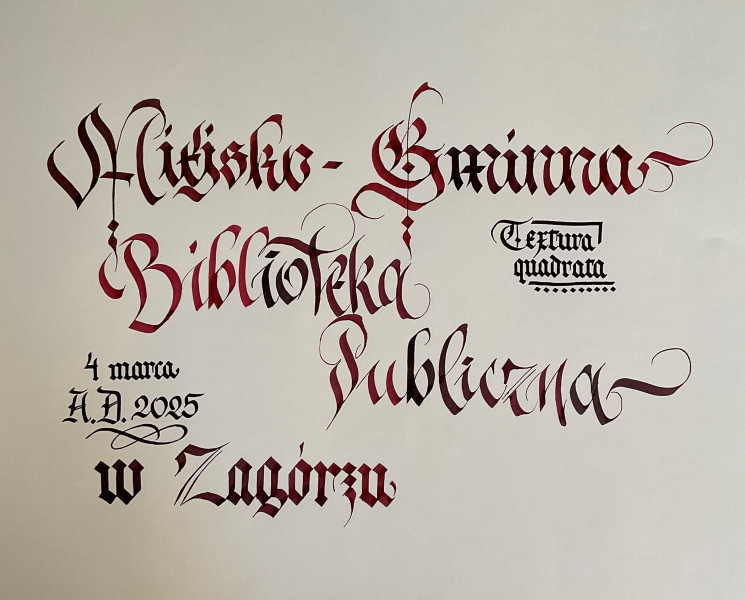 Miejsko - Gminna
Biblioteka
Textura
quadrata
Publiczna
4 marca
A.D. 2025
w Zagórzu